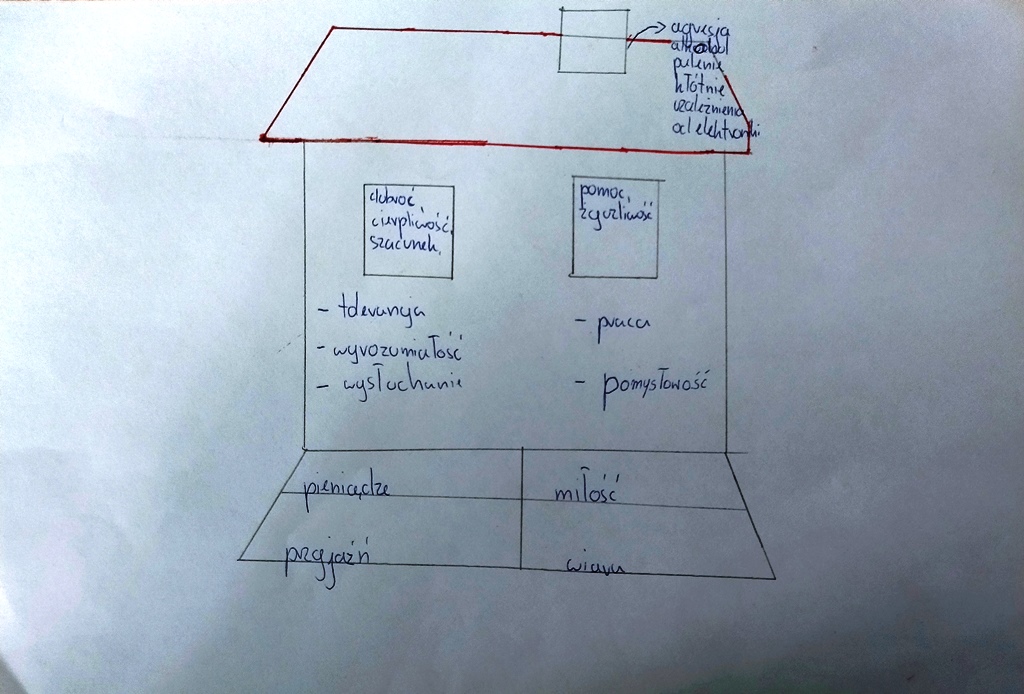 agresja
alkohol
palenie
kłótnie
uzależnienia
od elektroniki
dobroć,
cierpliwość,
szacunek,
pomoc,
życzliwość
- tolerancja
- wyrozumiałość
- wysłuchanie
- praca
- pomysłowość
pieniądze
miłość
przyjaźń
wiara